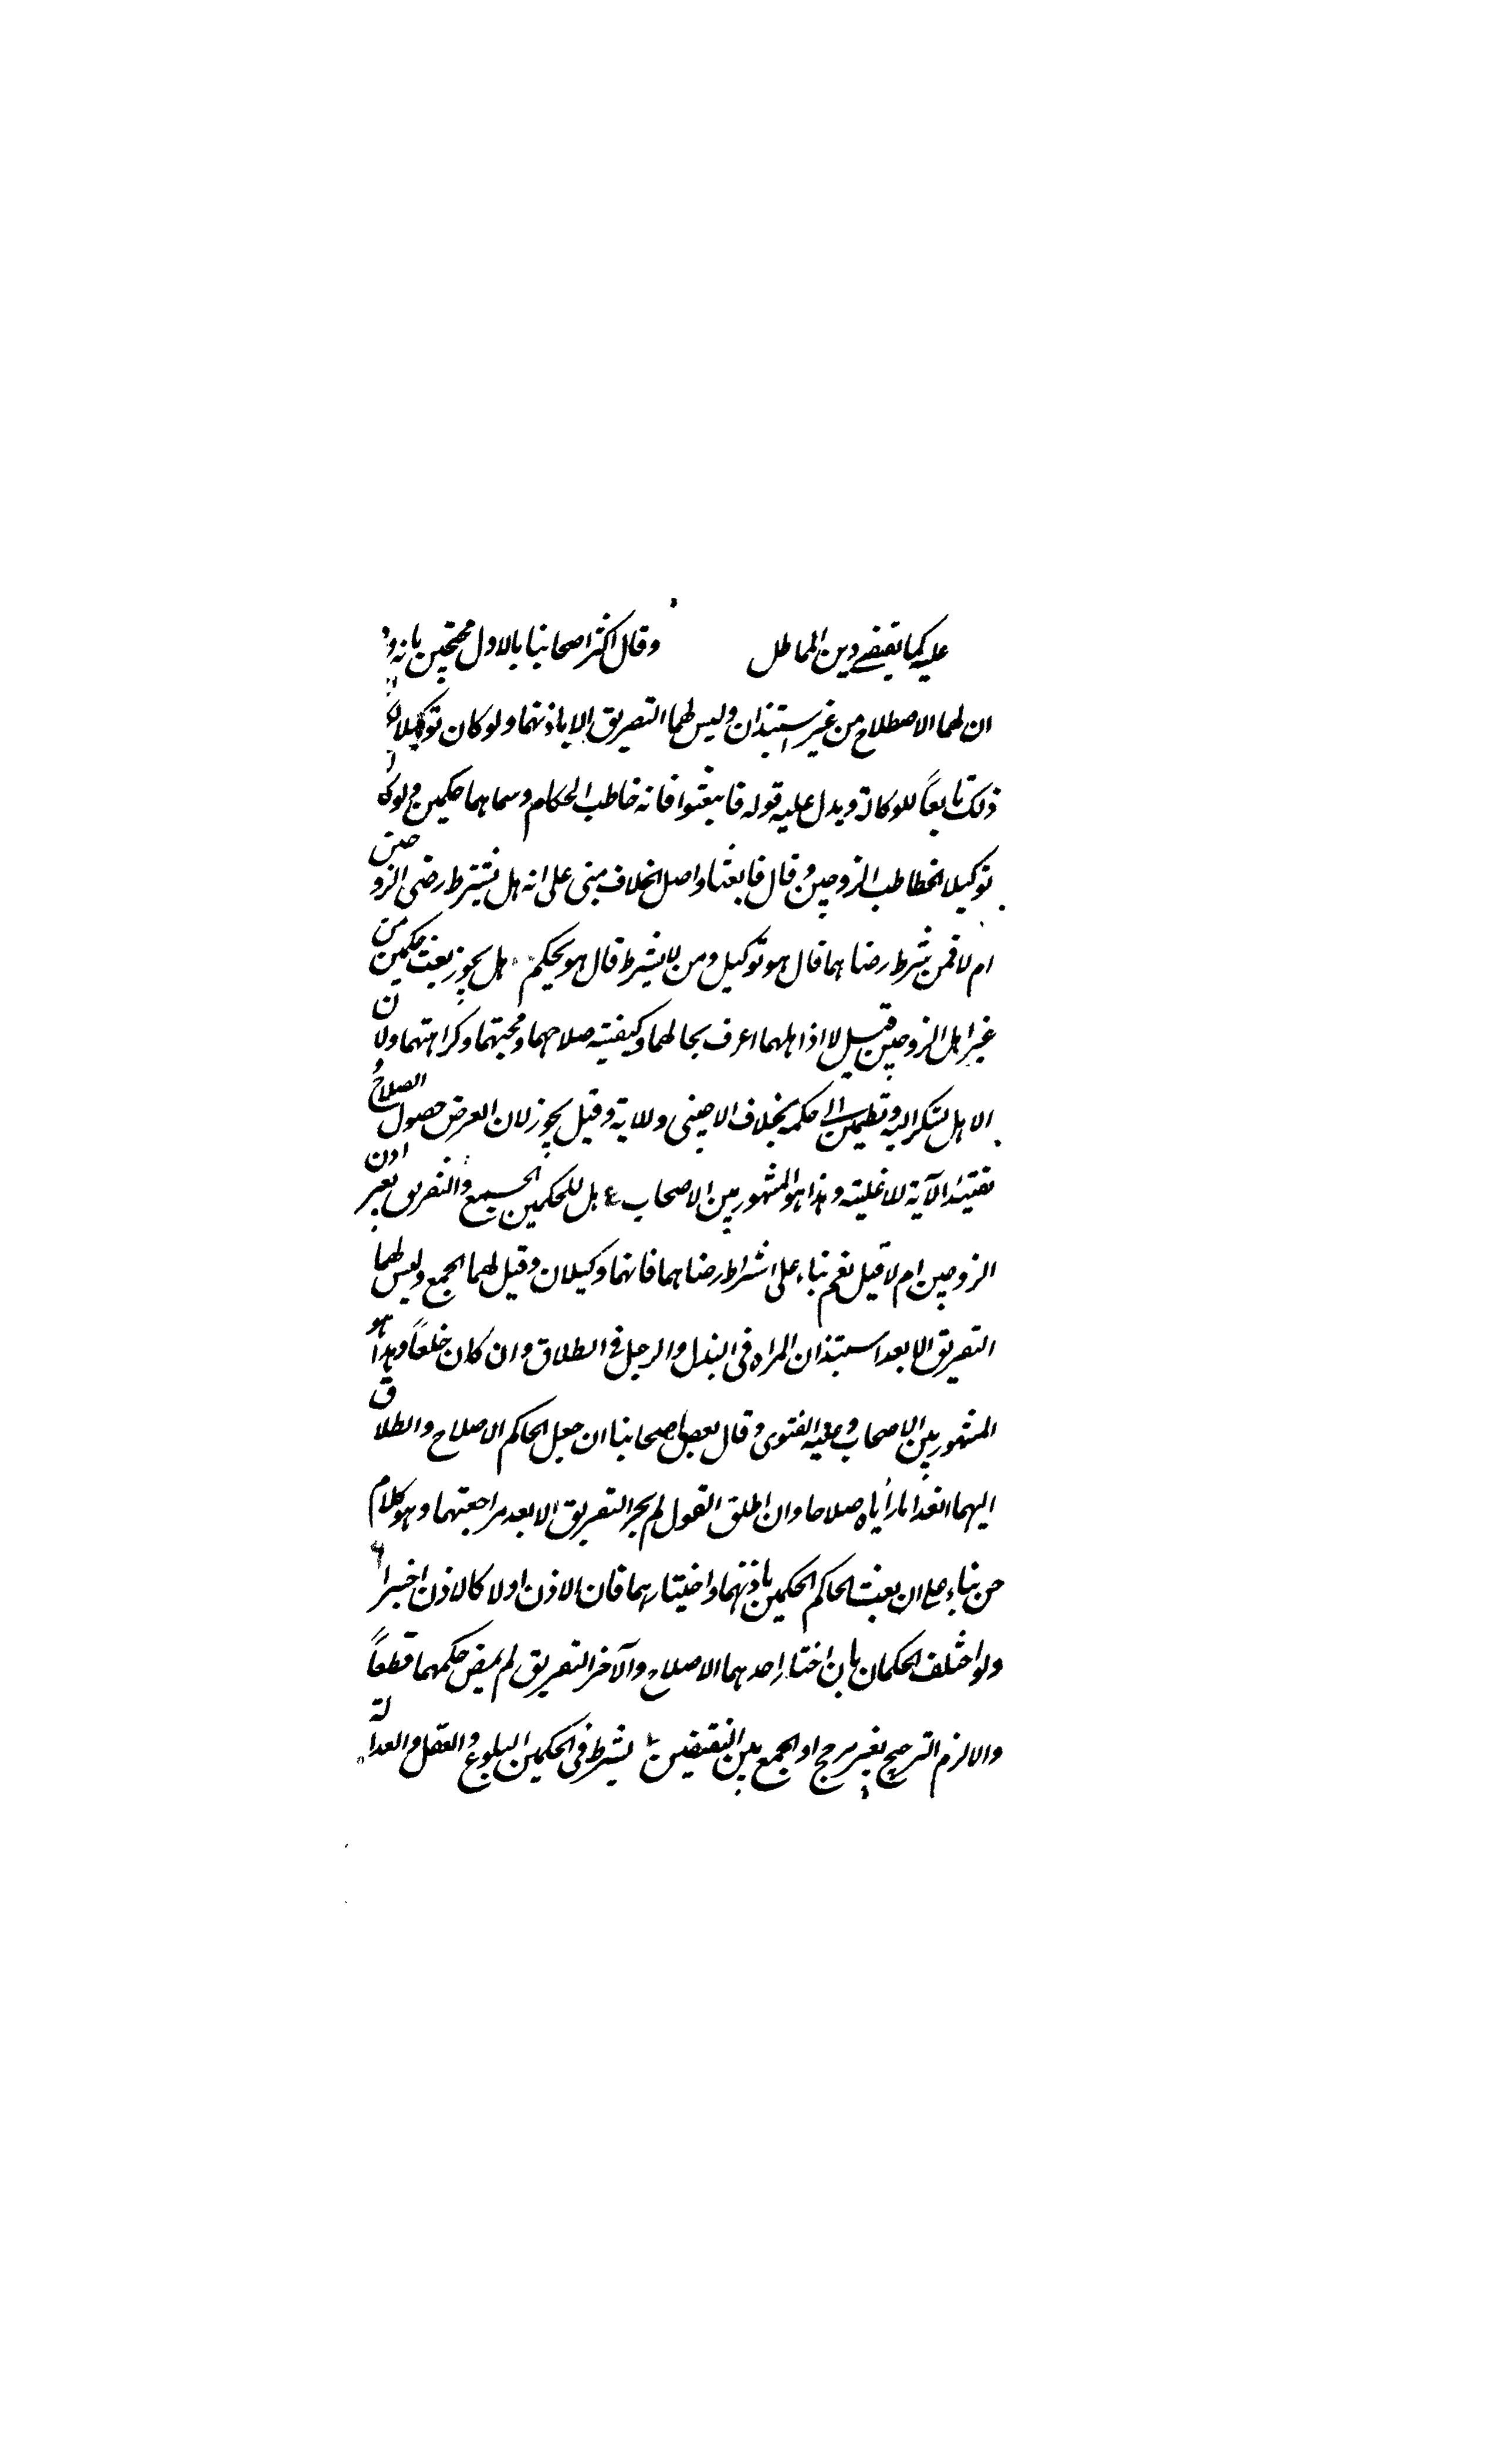 عليه كما يقضي دين المماطل وقال اكثر اصحابنا بالاول محتجين بانه رو
ان لهما الاصطلاح من غير استيذان وليس لهما التفريق الا باذنهما ولو كان توكيلا لكان
ذلك تابعاً للوكالة ويدل عليه قوله فابعثوا فانه خاطب الحكام وسماهما حكمين ولو كا
توكيلا لخاطب الزوجين وقال فابعثا واصل الخلاف مبنى على انه هل يشترط رضى الزوجين
ام لا فمن شرط رضاهما قال هو توكيل ومن لا يشترط قال هو تحكيم هل يجوز بعث حكمين من
غير اهل الزوجين قيل لا اذ اهلهما اعرف بحالهما وكيفية صلاحهما ومحبتهما وكراهتهما ولان
الاهل تسكن اليه وتطمئن الى حكمه بخلاف الاجنبى وللآية وقيل يجوز لان الغرض حصول الصلاح
تقييد الآية للاغلبية وهذا هو المشهور بين الاصحاب ٤ هل للحكمين الجمع والتفريق بغير اذن
الزوجين ام لا قيل نعم بناء على اشتراط رضاهما فانهما وكيلان وقيل لهما الجمع وليس لهما
التفريق الا بعد استيذان المراه فى البذل والرجل فى الطلاق وان كان خلعاً وهذا هو
المشهور بين الاصحاب وعليه الفتوى وقال بعض اصحابنا ان جعل الحاكم الاصلاح والطلاق
اليهما انفذا ما رأياه صلاحا وان اطلق القول لم يجز التفريق الا بعد مراجعتهما وهو كلام
حسن بناء على ان بعث الحاكم الحكمين باذنهما واختيارهما فان الاذن اولا كالاذن اخيرا
ولو اختلف الحكمان بان اختار احدهما الاصلاح والآخر التفريق لم يمض حكمهما قطعاً
والا لزم الترجيح بغير مرجح او الجمع بين النقيضين يشترط فى الحكمين البلوغ والعقل والعدالة